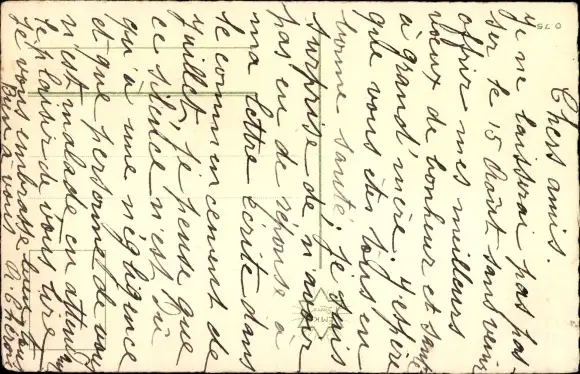 Chers amis.
Je ne laisserai pas pas
ser le 15 Août sans venir
offrir mes meilleurs
vœux de bonheur et santé
à grand'mère. J'espère
que vous êtes tous en
bonne santé. Je suis
surprise de n'avoir
pas eu de réponse à
ma lettre écrite dans
le commencement de
Juillet. Je pense que
ce silence n'est dû
qu'à une négligence
et que personne de vous
n'est malade en attendant
le plaisir de vous lire
Je vous embrasse tous
Bien à vous
0 75